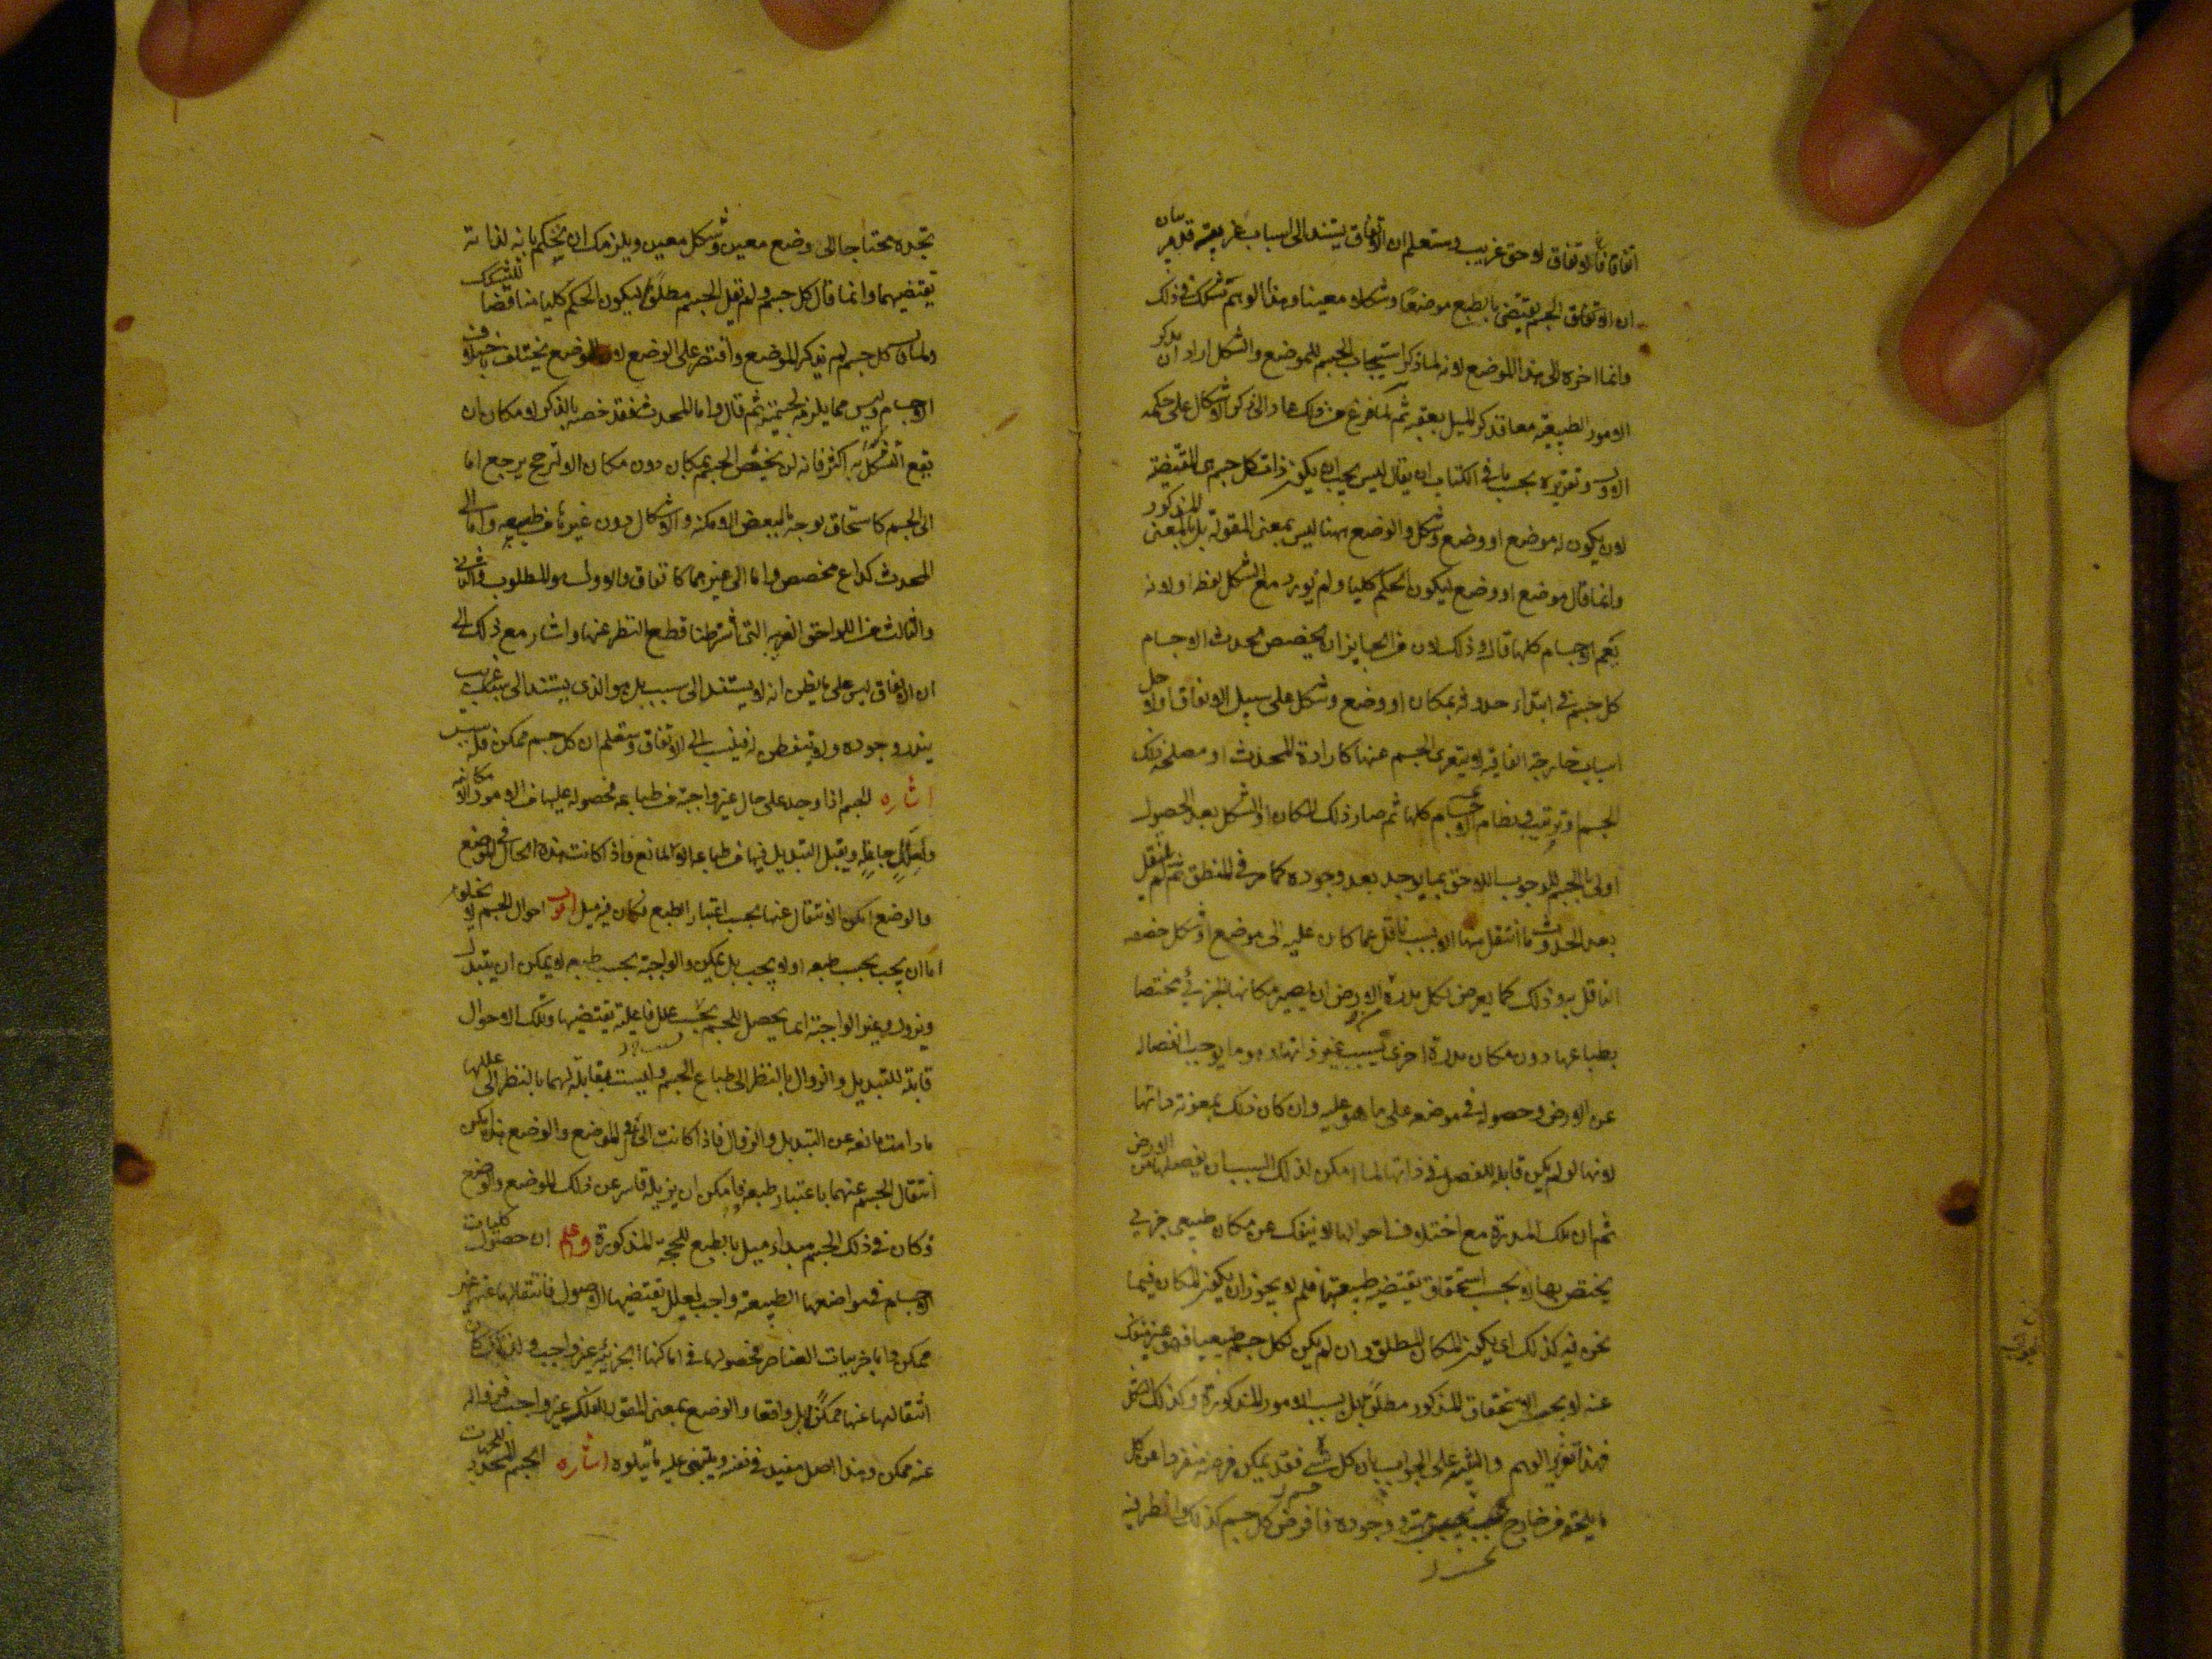 اتفاقا فالاتفاق لاحق غريب وستعلم ان الاتفاق يستند الى اسباب غريبة قد مر بيان
ان الاتفاق الجسم يقتضى بالطبع موضعا وشكلا معينا وهذا الوهم تشكك في ذلك
وانما اخره الى هذا الموضع لانه لما ذكر استيجاب الجسم للموضع والشكل اراد ان يذكر
الامور الطبيعية معا فذكر الميل بعقبه ثم لما فرغ من ذلك عاد الى ذكر الاشكال على حكمه
الاول وتقريره بحسب ما في الكتاب ان يقال ليس يجب ان يكون ذات كل جسم هي المقتضية
لان يكون له موضع او وضع وشكل والوضع ههنا ليس بمعنى المقولة بل بالمعنى المذكور
وانما قال موضع او وضع ليكون الحكم كليا ولم يورد مع الشكل لفظ او لانه
يعم الاجسام كلها قال وذلك لان من الجايز ان يخصص محدث الاجسام
كل جسم في ابتداء حدوثه بمكان او وضع وشكل على سبيل الاتفاق او لاجل
اسباب خارجة اتفاقية لا يتعرى الجسم عنها كارادة المحدث او مصلحة ذلك
الجسم او ترتيب في نظام الاجسام كلها ثم صار ذلك المكان او الشكل بعد الحصول
اولى بالجسم للوجوب اللاحق بما يوجد بعد وجوده كما مر في المنطق ثم لم ينتقل
بعد الحدوث ما انتقل منها الا بسبب ناقل عما كان عليه الى موضع او شكل خصه
الناقل به وذلك كما يعرض لكل مدرة الارض ان يصير مكانها الجزئي مختصا
بطباعها دون مكان مدرة اخرى بسبب غير ذاتها وهو ما يوجب انفصاله
عن الارض وحصوله في موضعه على ما هو عليه وان كان ذلك بمعونة ذاتها
لانها لو لم يكن قابلة للفصل في ذاتها لما امكن لذلك السبب ان يفصلها من الارض
ثم ان تلك المدرة مع اختلاف احوالها لا ينفك عن مكان طبيعى جزئي
يختص بها لا بحسب استحقاق يقتضيه طبيعتها فلم لا يجوز ان يكون المكان فيما
نحن فيه كذلك اي يكون المكان المطلق وان لم يكن لكل جسم طبيعيا فهو غير منفك
عنه لا بحسب الاستحقاق المذكور مطلقا بل بسبب الامور المذكورة وكذلك الشكل
فهذا تقرير الوهم والتنبيه على الجواب بان كل شئ فقد يمكن فرضه منفردا عن كل
ما يلحقه من خارج وجوده فافرض كل جسم كذلك وانظر فيه
تجده محتاجا الى وضع معين وشكل معين ويلزمك ان تحكم بانه لذاته
يقتضيهما وانما قال كل جسم ولم يقل الجسم مطلقا ليكون الحكم كليا مناقضا للتشكك
ولما قال كل جسم لم يذكر الموضع واقتصر على الوضع لان الموضع يختلف باختلاف
الاجسام وليس مما يلزمه لجسميته ثم قال واما المحدث فقد خصه بالذكر لامكان ان
يقع التشكك به اكثر فانه لن يخصص الجسم بمكان دون مكان الا لترجح يرجع اما
الى الجسم كاستحقاق يوجد لبعض الامكنة والاشكال دون غيرها في طبيعته واما الى
المحدث كداع مخصص واما الى غيرهما كاتفاق والاول هو المطلوب والثاني
والثالث من اللواحق الغريبة التي اشرطنا قطع النظر عنها واشار مع ذلك الى
ان الاتفاق ليس على ما يظن انه لا يستند الى سبب بل هو الذي يستند الى سبب غريب
يندر وجوده ولا يتفطن له فينسب الى الاتفاق وستعلم ان كل جسم ممكن فله سبب
اشاره الجسم اذا وجد على حال غير واجبة من طباعه فحصوله عليها من الامور الامكانية
ولعلل جاعلة ويقبل التبديل فيها من طباعه الا لمانع واذا كانت هذه الحال في الموضع
والوضع امكن الانتقال عنها بحسب اعتبار الطبع فكان فيه ميل اقول احوال الجسم لا يخلو
اما ان يجب بحسب طبعه او لا يجب بل يمكن والواجبة بحسب طبعه لا يمكن ان يتبدل
ويزول وغير الواجبة انما يحصل للجسم بحسب علل فاعلية يقتضيها وتلك الاحوال
قابلة للتبديل والزوال بالنظر الى طباع الجسم وليست بقابلة لهما بالنظر الى عللها
ما دامت مانعه عن التبديل والزوال فاذا كانت الحال في الموضع والوضع هذه امكن
انتقال الجسم عنهما باعتبار طبعه فامكن ان يزيله قاسر عن ذلك الموضع والوضع
فكان في ذلك الجسم مبداء ميل بالطبع للحجة المذكورة واعلم ان حصول كليات
الاجسام في مواضعها الطبيعة واجب لعلل يقتضيها الاصول فانتقالها عنها غير
ممكن واما جزئيات العناصر فحصولها في اماكنها الجزئية غير واجب ولذلك كان
انتقالها عنها ممكنا بل واقعا والوضع بمعنى المقولة للفلك غير واجب فزواله
عنه ممكن وهذا اصل مفيد في نفسه ويبتنى عليه ما يتلوه اشاره الجسم المحدد للجهات